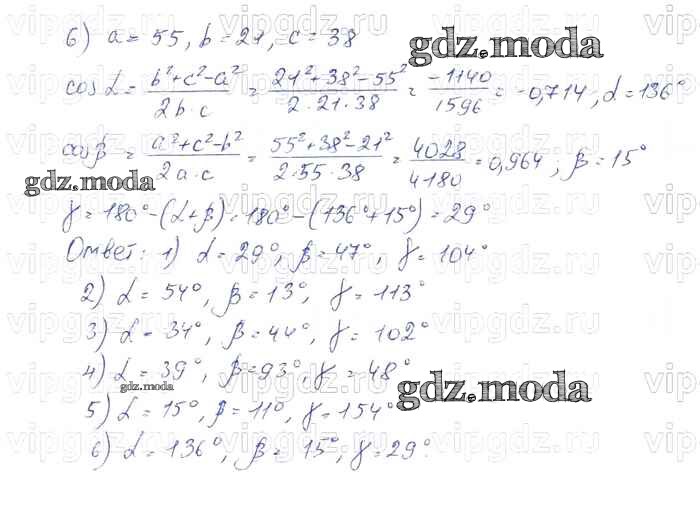 6) a = 55, b = 21, c = 38
gdz.moda
cos α = (b²+c²-a²)/(2b·c) = (21²+38²-55²)/(2·21·38) = -1140/1596 = -0,714; α = 136°
cos β = (a²+c²-b²)/(2a·c) = (55²+38²-21²)/(2·55·38) = 4028/4180 = 0,964; β = 15°
gdz.moda
γ = 180° - (α+β) = 180° - (136°+15°) = 29°
Ответ: 1) α = 29°, β = 47°, γ = 104°
2) α = 54°, β = 13°, γ = 113°
3) α = 34°, β = 44°, γ = 102°
4) α = 39°, β = 93°, γ = 48°
gdz.moda
gdz.moda
5) α = 15°, β = 11°, γ = 154°
6) α = 136°, β = 15°, γ = 29°.
vipgdz.ru